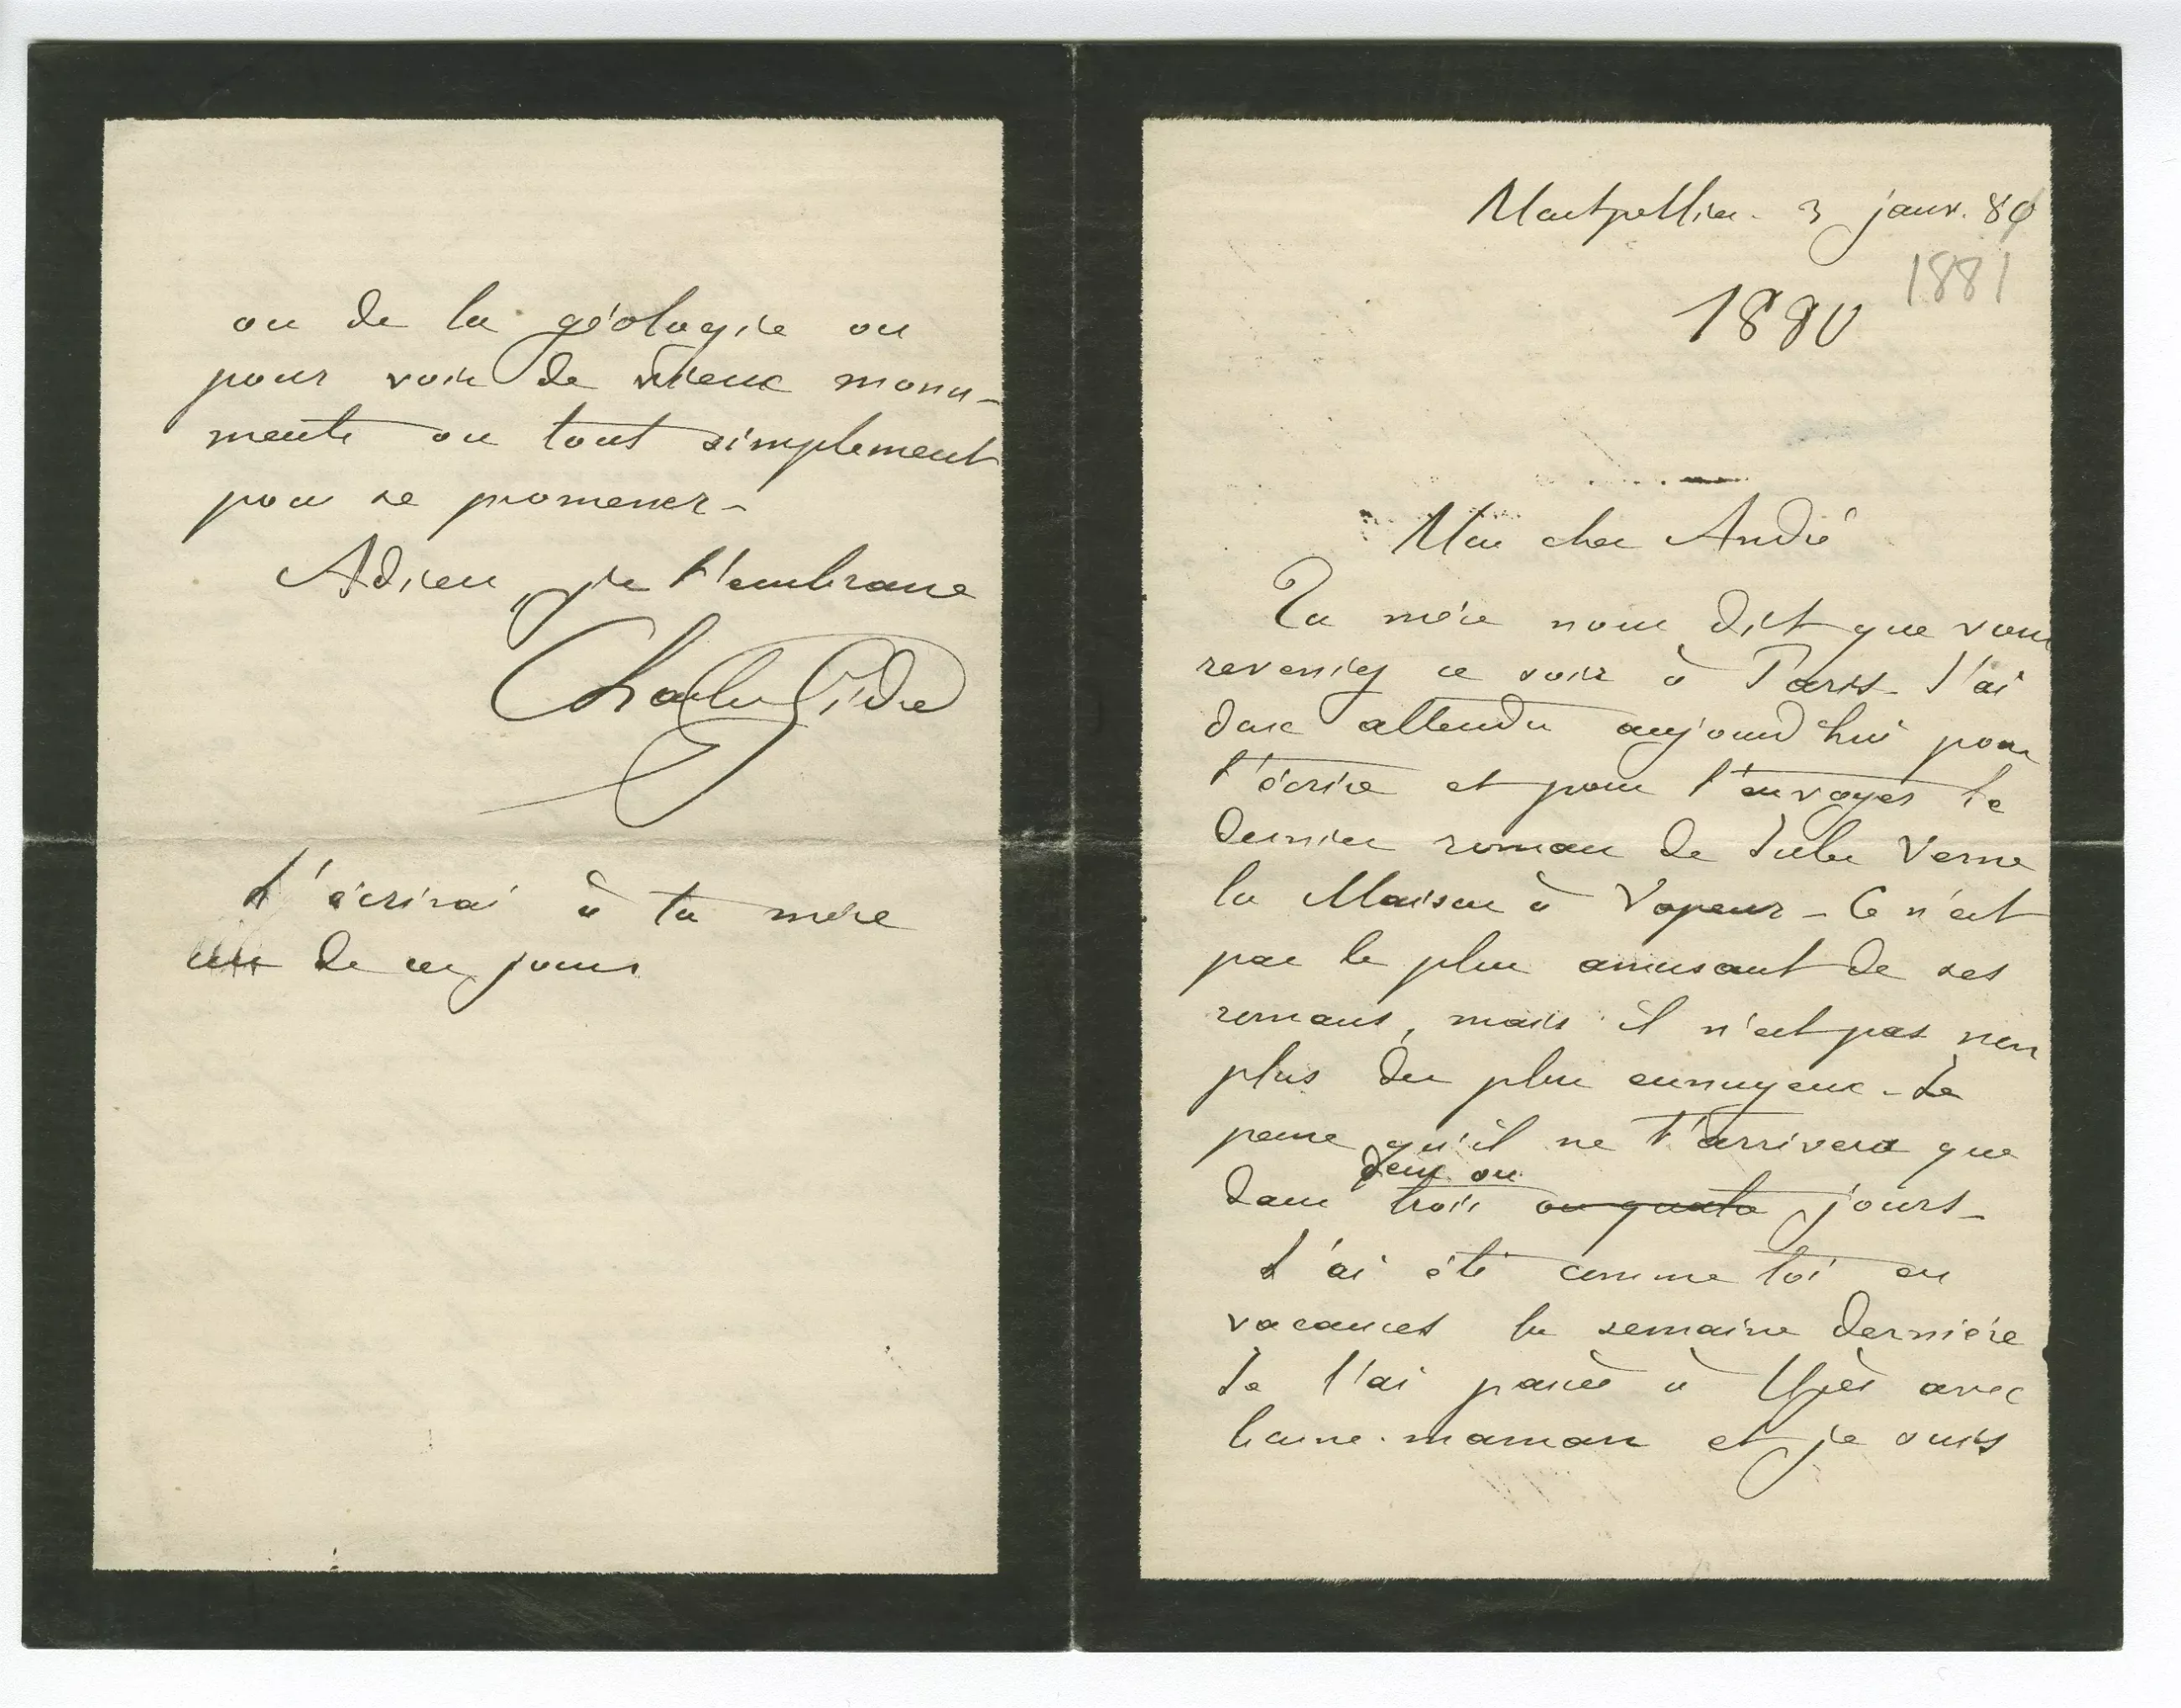 Montpellier. 3 janv. 80
1881
1880
Mon cher André
Ta mère nous dit que vous
revenez ce soir à Paris. J'ai
donc attendu aujourd'hui pour
t'écrire et pour t'envoyer le
dernier roman de Jules Verne
la Maison à Vapeur – Ce n'est
pas le plus amusant de ses
romans, mais il n'est pas non
plus des plus ennuyeux – Je
pense qu'il ne t'arrivera que
deux ou
dans trois ou quatre jours –
J'ai été comme toi en
vacances la semaine dernière
Je l'ai passée à Uzès avec
bonne-maman et je suis
ou de la géologie ou
pour voir de vieux monu-
ments ou tout simplement
pour se promener –
Adieu, je t'embrasse
Charles Gide
J'écrirai à ta mère
un de ces jours